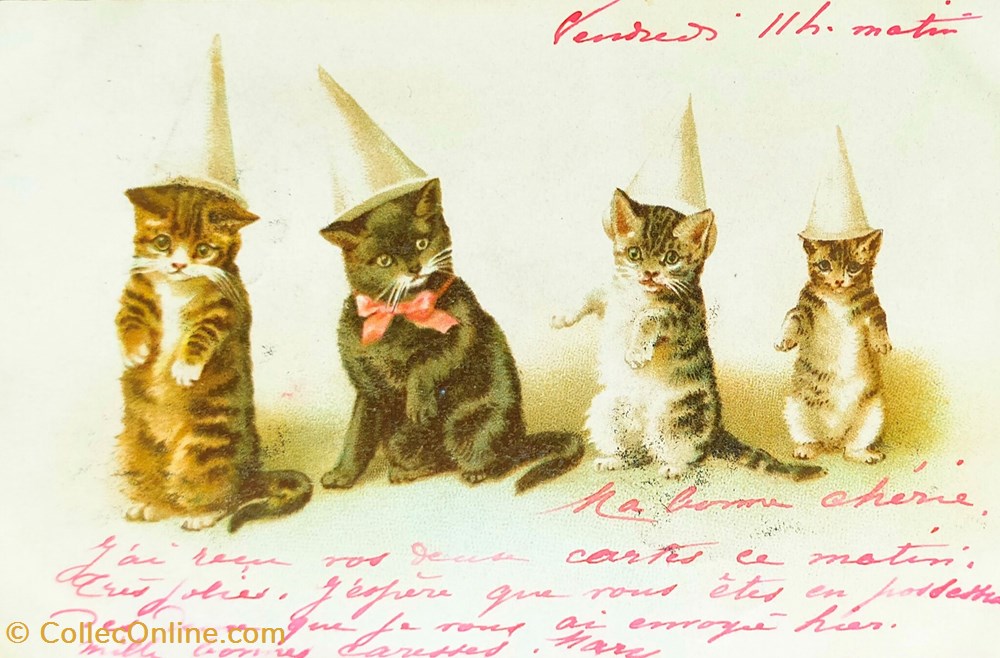 Vendredi 11 h. matin
Ma bonne chérie,
J'ai reçu vos deux cartes ce matin.
Très jolies. J'espère que vous êtes en possession
que je vous ai envoyé hier.
mille bonnes caresses. Mary
© CollecOnline.com